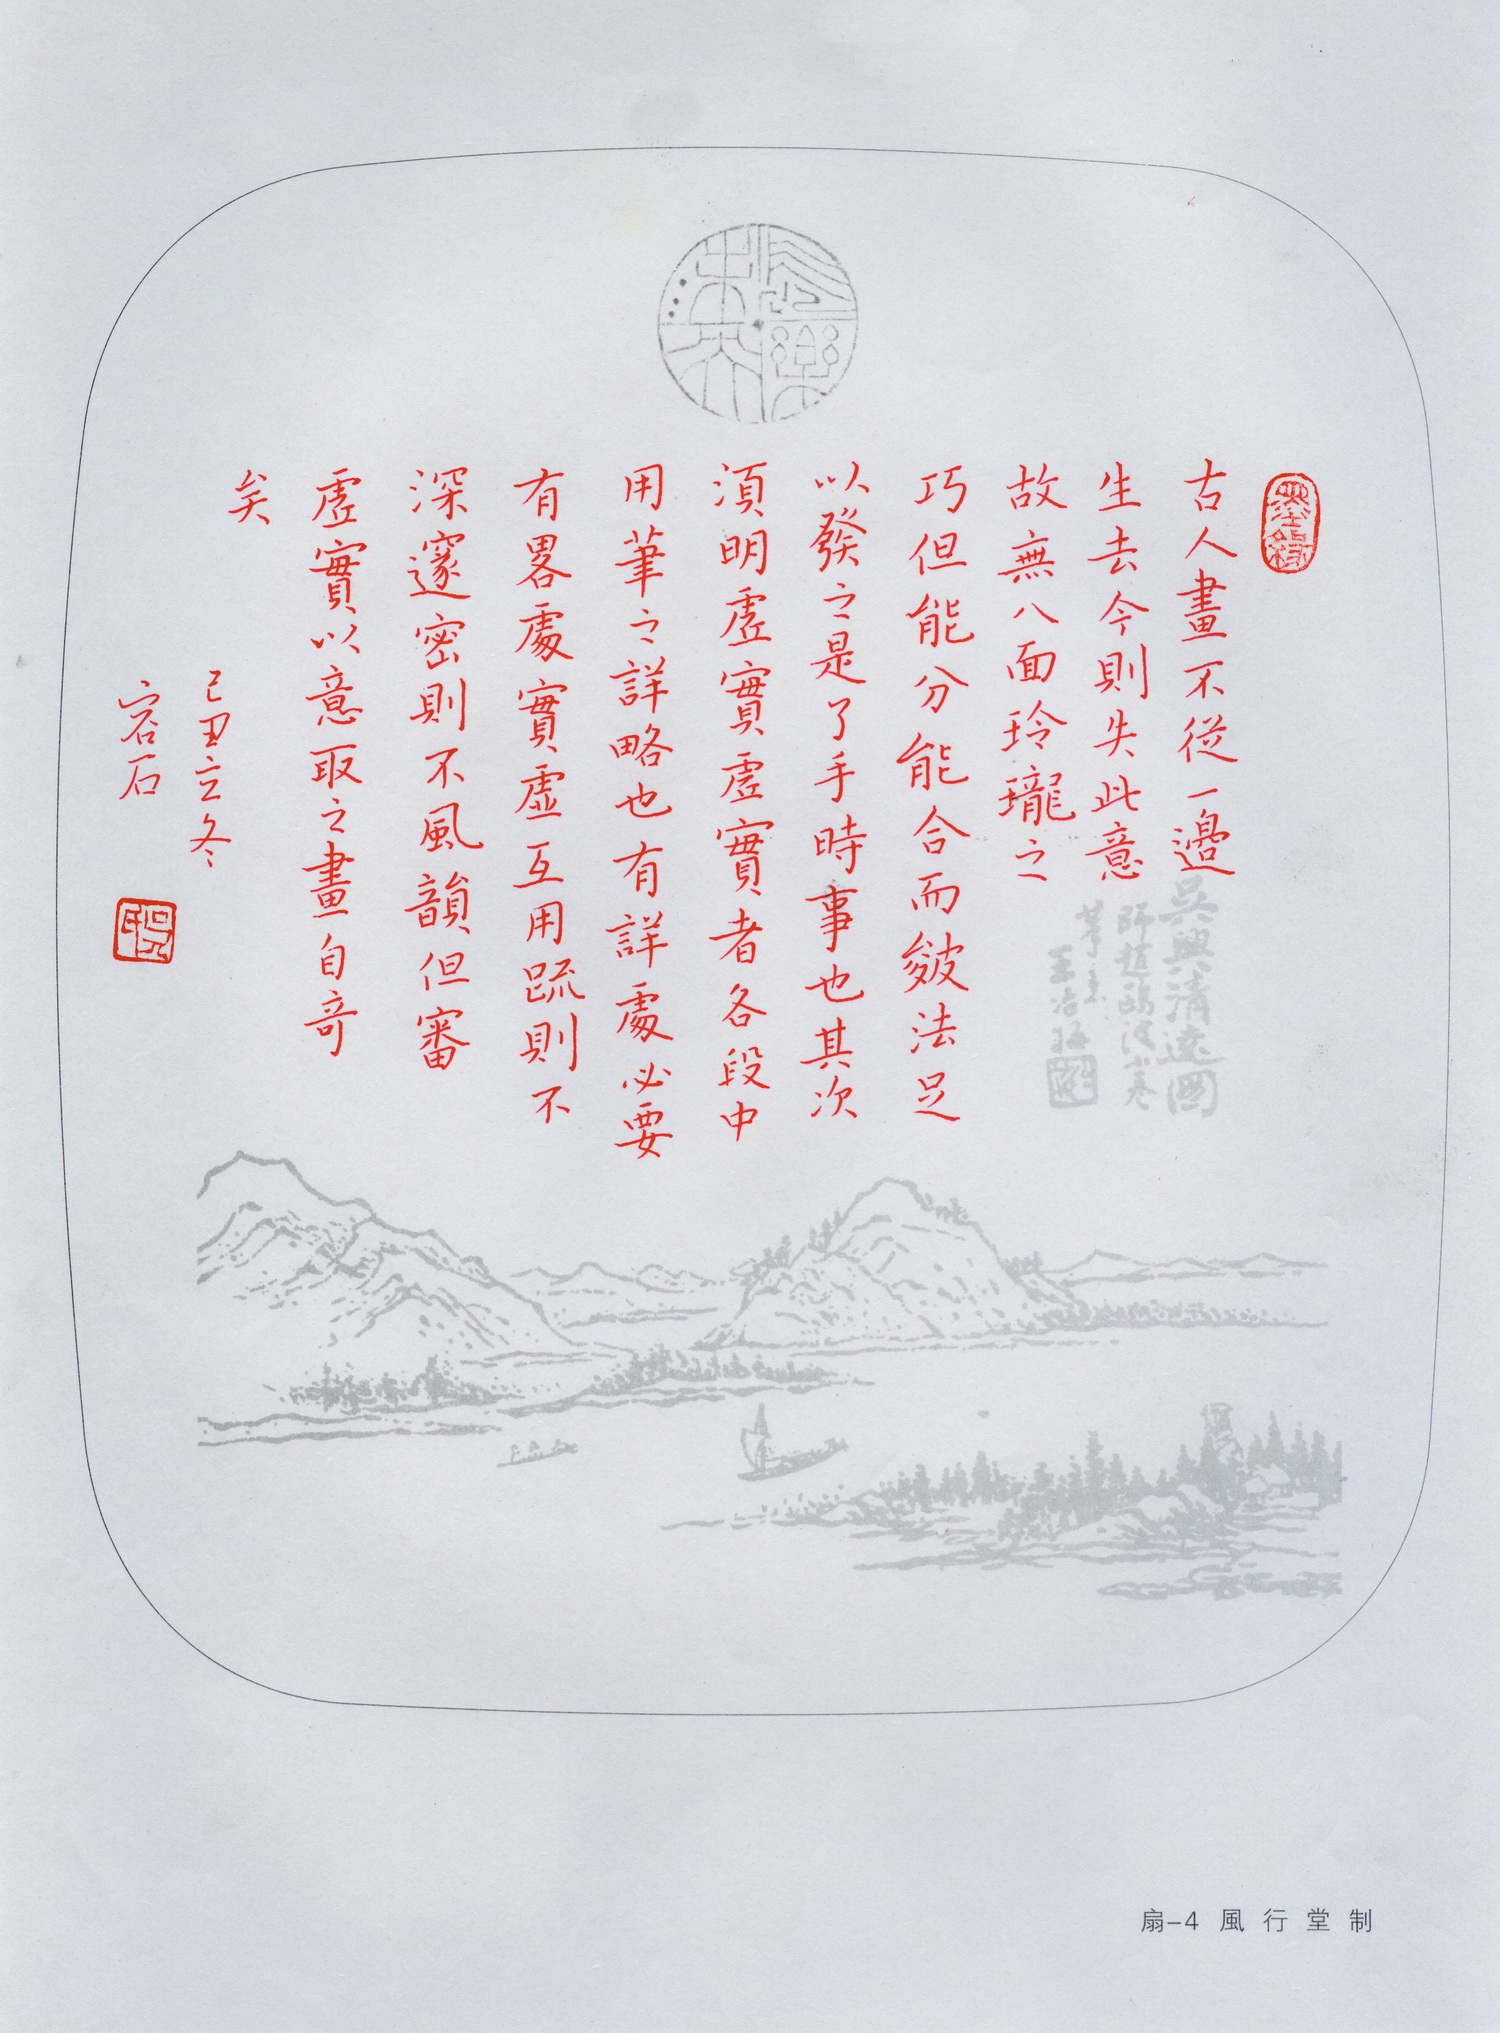 墨緣
古人畫不從一邊
生去今則失此意
故無八面玲瓏之
巧但能分能合而皴法足
以發之是了手時事也其次
須明虛實虛實者各段中
用筆之詳略也有詳處必要
有畧處實虛互用疏則不
深邃密則不風韻但審
虛實以意取之畫自奇
矣
己丑立冬
容石
吳興清遠圖
師趙鷗波小卷
筆意
扇-4 風行堂制